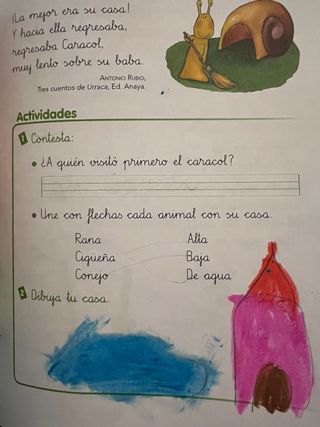 ¡La mejor era su casa!
Y hacia ella regresaba,
regresaba Caracol,
muy lento sobre su baba.
ANTONIO RUBIO,
Tres cuentos de Urraca, Ed. Anaya.
Actividades
1 Contesta:
• ¿A quién visitó primero el caracol?
• Une con flechas cada animal con su casa.
Rana Alta
Cigüeña Baja
Conejo De agua
2 Dibuja tu casa.